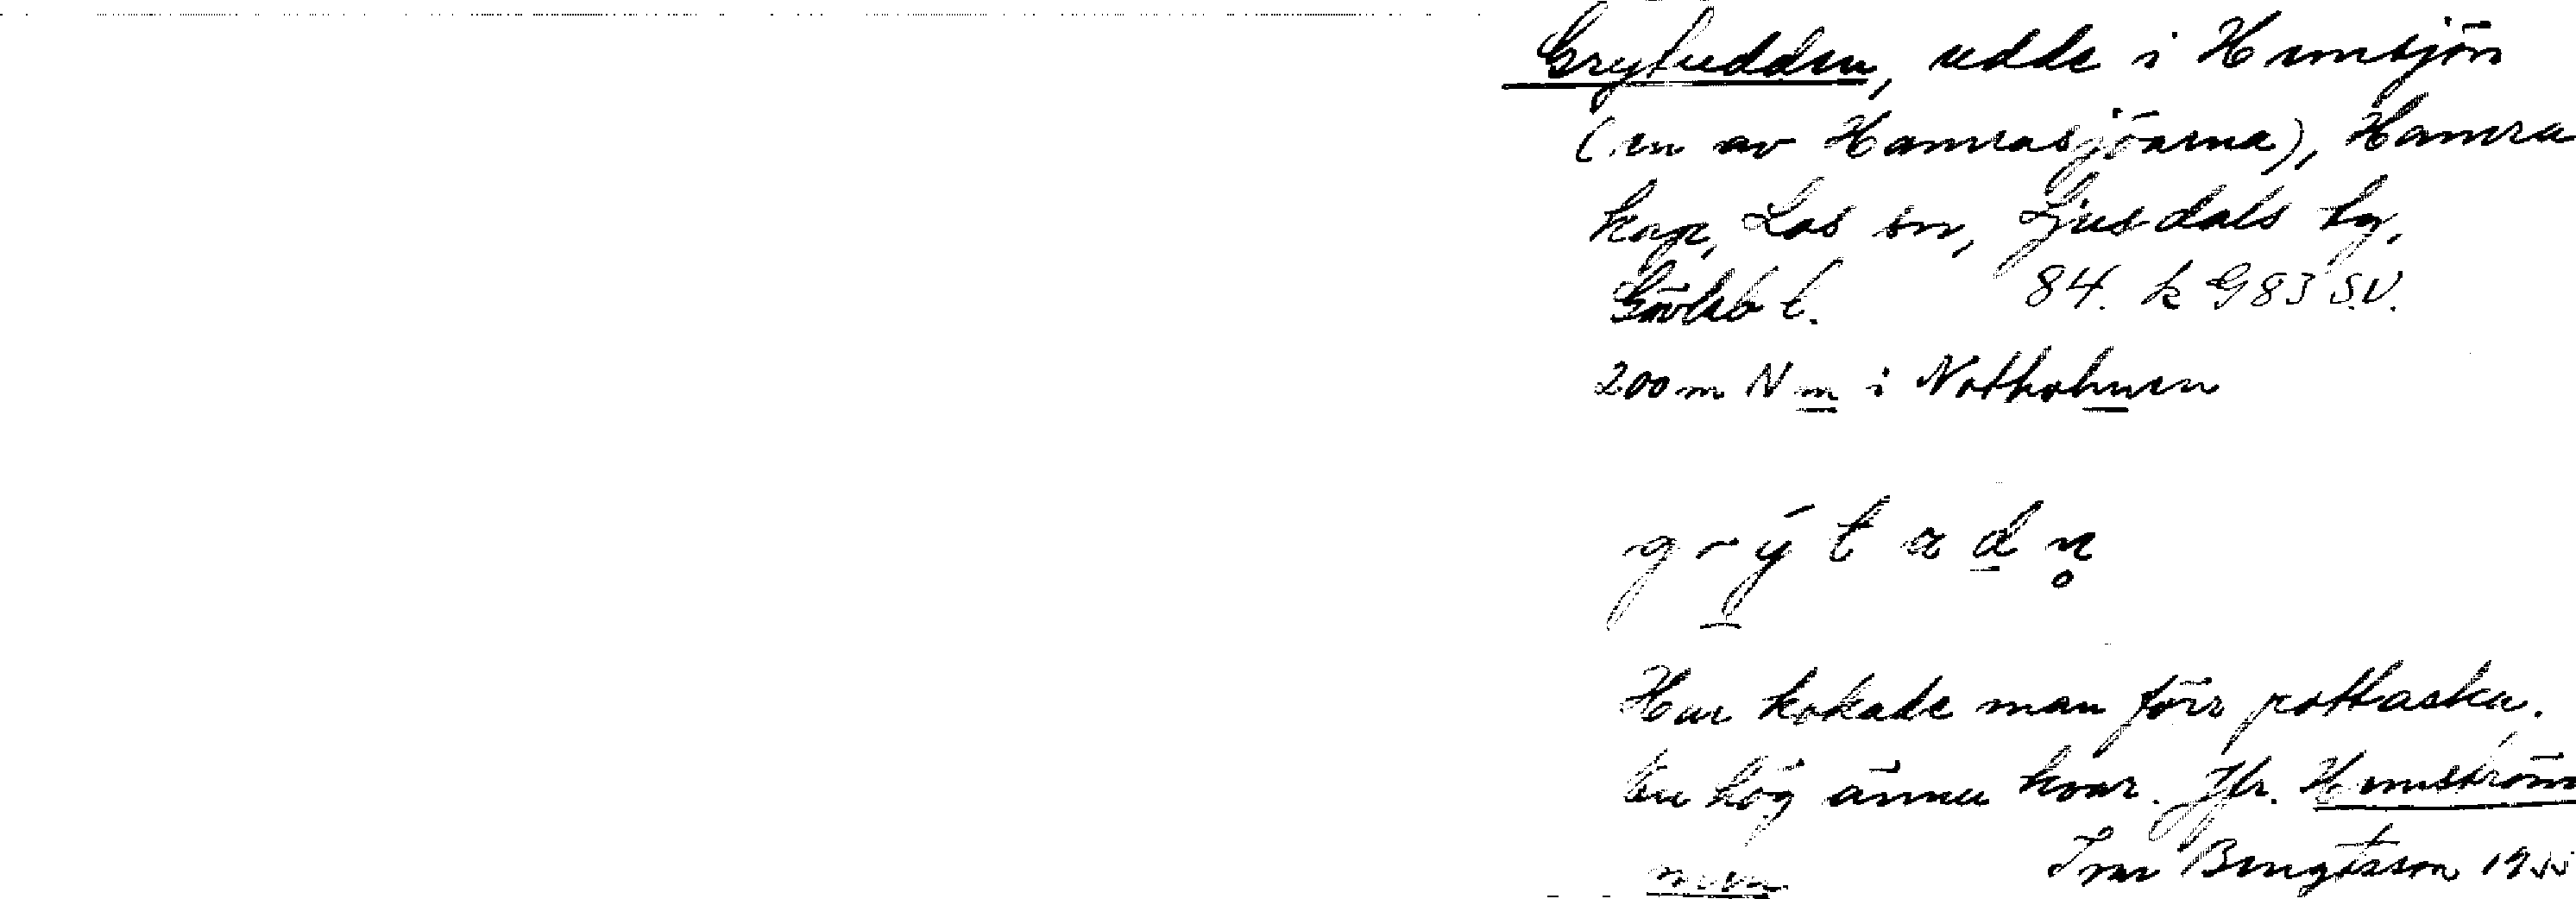 Grytudden, udde i Hemsjön
(en av Hamrasjöarna), Hamra
kap, Los sn, Ljusdals tg,
Gävleb l. 84. k G83 S.V.
200 m N m i Notholmen
grýtadn̥
Här kokade man förr pottaska.
En hög ännu kvar. Jfr. Hemström
men
Ivar Bengtsson 1935